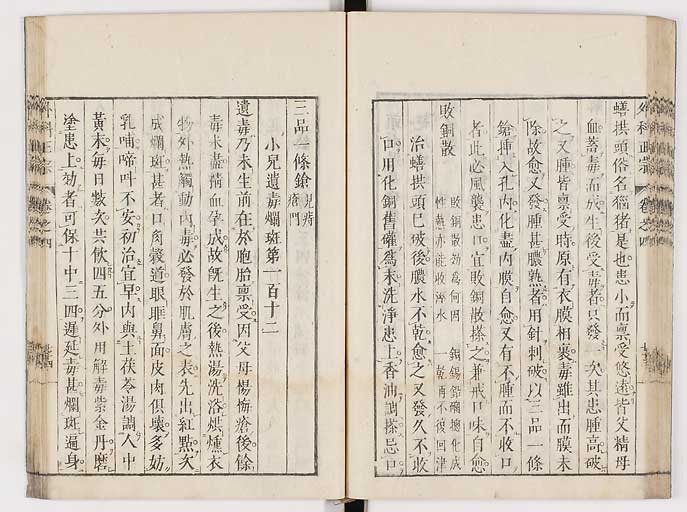 外科正宗 卷之四
蟮拱頭俗名猢猪是也患小而稟受悠遠皆父精母
血蓄毒而成生後受毒者只發一次其患腫高破
之又腫皆稟受時原有衣膜相裹毒雖出而膜未
除故愈又發腫甚膿熟者用針刺破以三品一條
鎗挿入孔内化盡内膜自愈又有不腫而不收口
者此必風襲患口宜敗銅散搽之兼戒口味自愈
敗銅散
敗銅散効為何因 銅錫鉛礦塊化成
性熱亦能收滲水 一乾膏不復回津
治蟮拱頭已破後膿水不乾愈之又發久不收
口用化銅舊礶為末洗淨患上香油調搽忌口
三品一條鎗 見痔瘡門
小兒遺毒爛斑第一百十二
遺毒乃未生前在於胞胎稟受因父母楊梅瘡後餘
毒未盡精血孕成故旣生之後熱湯洗浴烘燻衣
物外熱觸動内毒必發於肌膚之表先出紅點次
成爛斑甚者口角穀道眼眶鼻面皮肉俱壞多妨
乳哺啼呌不安初治宜早内與土茯苓湯調人中
黃末毎日數次共飲四五分外用解毒紫金丹磨
塗患上効者可保十中三四遲延毒甚爛斑遍身
外科正宗 卷之四